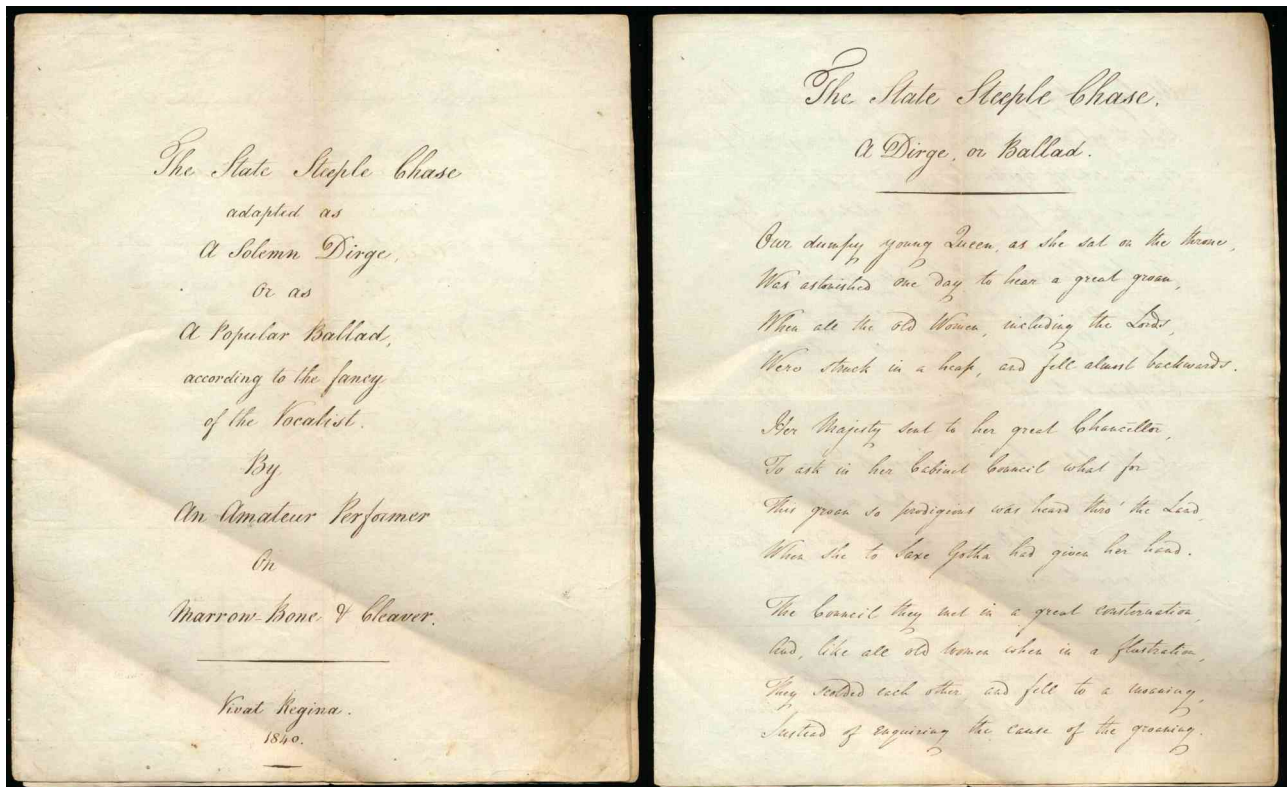 The State Steeple Chase
adapted as
A Solemn Dirge,
Or as
A Popular Ballad,
according to the fancy
of the Vocalist.
By
An Amateur Performer
On
Marrow-Bone & Cleaver.
Vivat Regina.
1840.
The State Steeple Chase.
A Dirge, or Ballad.
Our dumpy young Queen, as she sat on the throne,
Was astonished one day to hear a great groan,
When all the old Women, including the Lords,
Were struck in a heap, and fell almost backwards.
Her Majesty sent to her great Chancellor,
To ask in her Cabinet Council what for
This groan so prodigious was heard thro' the Land,
When she to Saxe Gotha had given her hand.
The Council they met in a great consternation,
And, like all old women when in a flustration,
They scolded each other, and fell to a moaning,
Instead of enquiring the cause of the groaning.